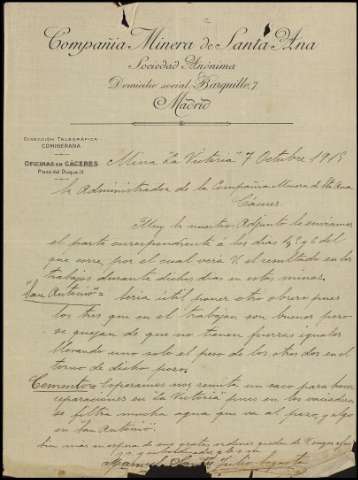 Compañia Minera de Santa Ana
Sociedad Anónima
Domicilio social: Barquillo, 7
Madrid
DIRECCIÓN TELEGRÁFICA
COMISERANA
OFICINAS EN CÁCERES
Mina "La Victoria" 7 Octubre 1915
Sr. Administrador de la Compañia Minera de Sta Ana
Cáceres
Muy Sr nuestro: Adjunto le enviamos
el parte correspondiente á los dias 4, 5 y 6 del
que corre, por el cual verá V. el resultado en los
trabajos durante dichos dias en estas minas.
"San Antonio" = Seria útil poner otro obrero pues
los tres que en el trabajan son buenos pero
se quejan de que no tienen fuerzas iguales
llevando uno solo el peso de los otros dos en el
torno de dicho pozo.
Cemento = Esperamos nos remita un saco para hacer
reparaciones en "La Victoria" pues en los vaciaderos
se filtra mucha agua que va al pozo, y algo
en "San Antonio".
Sin mas en espera de sus gratas ordenes quedan de V.
Julio